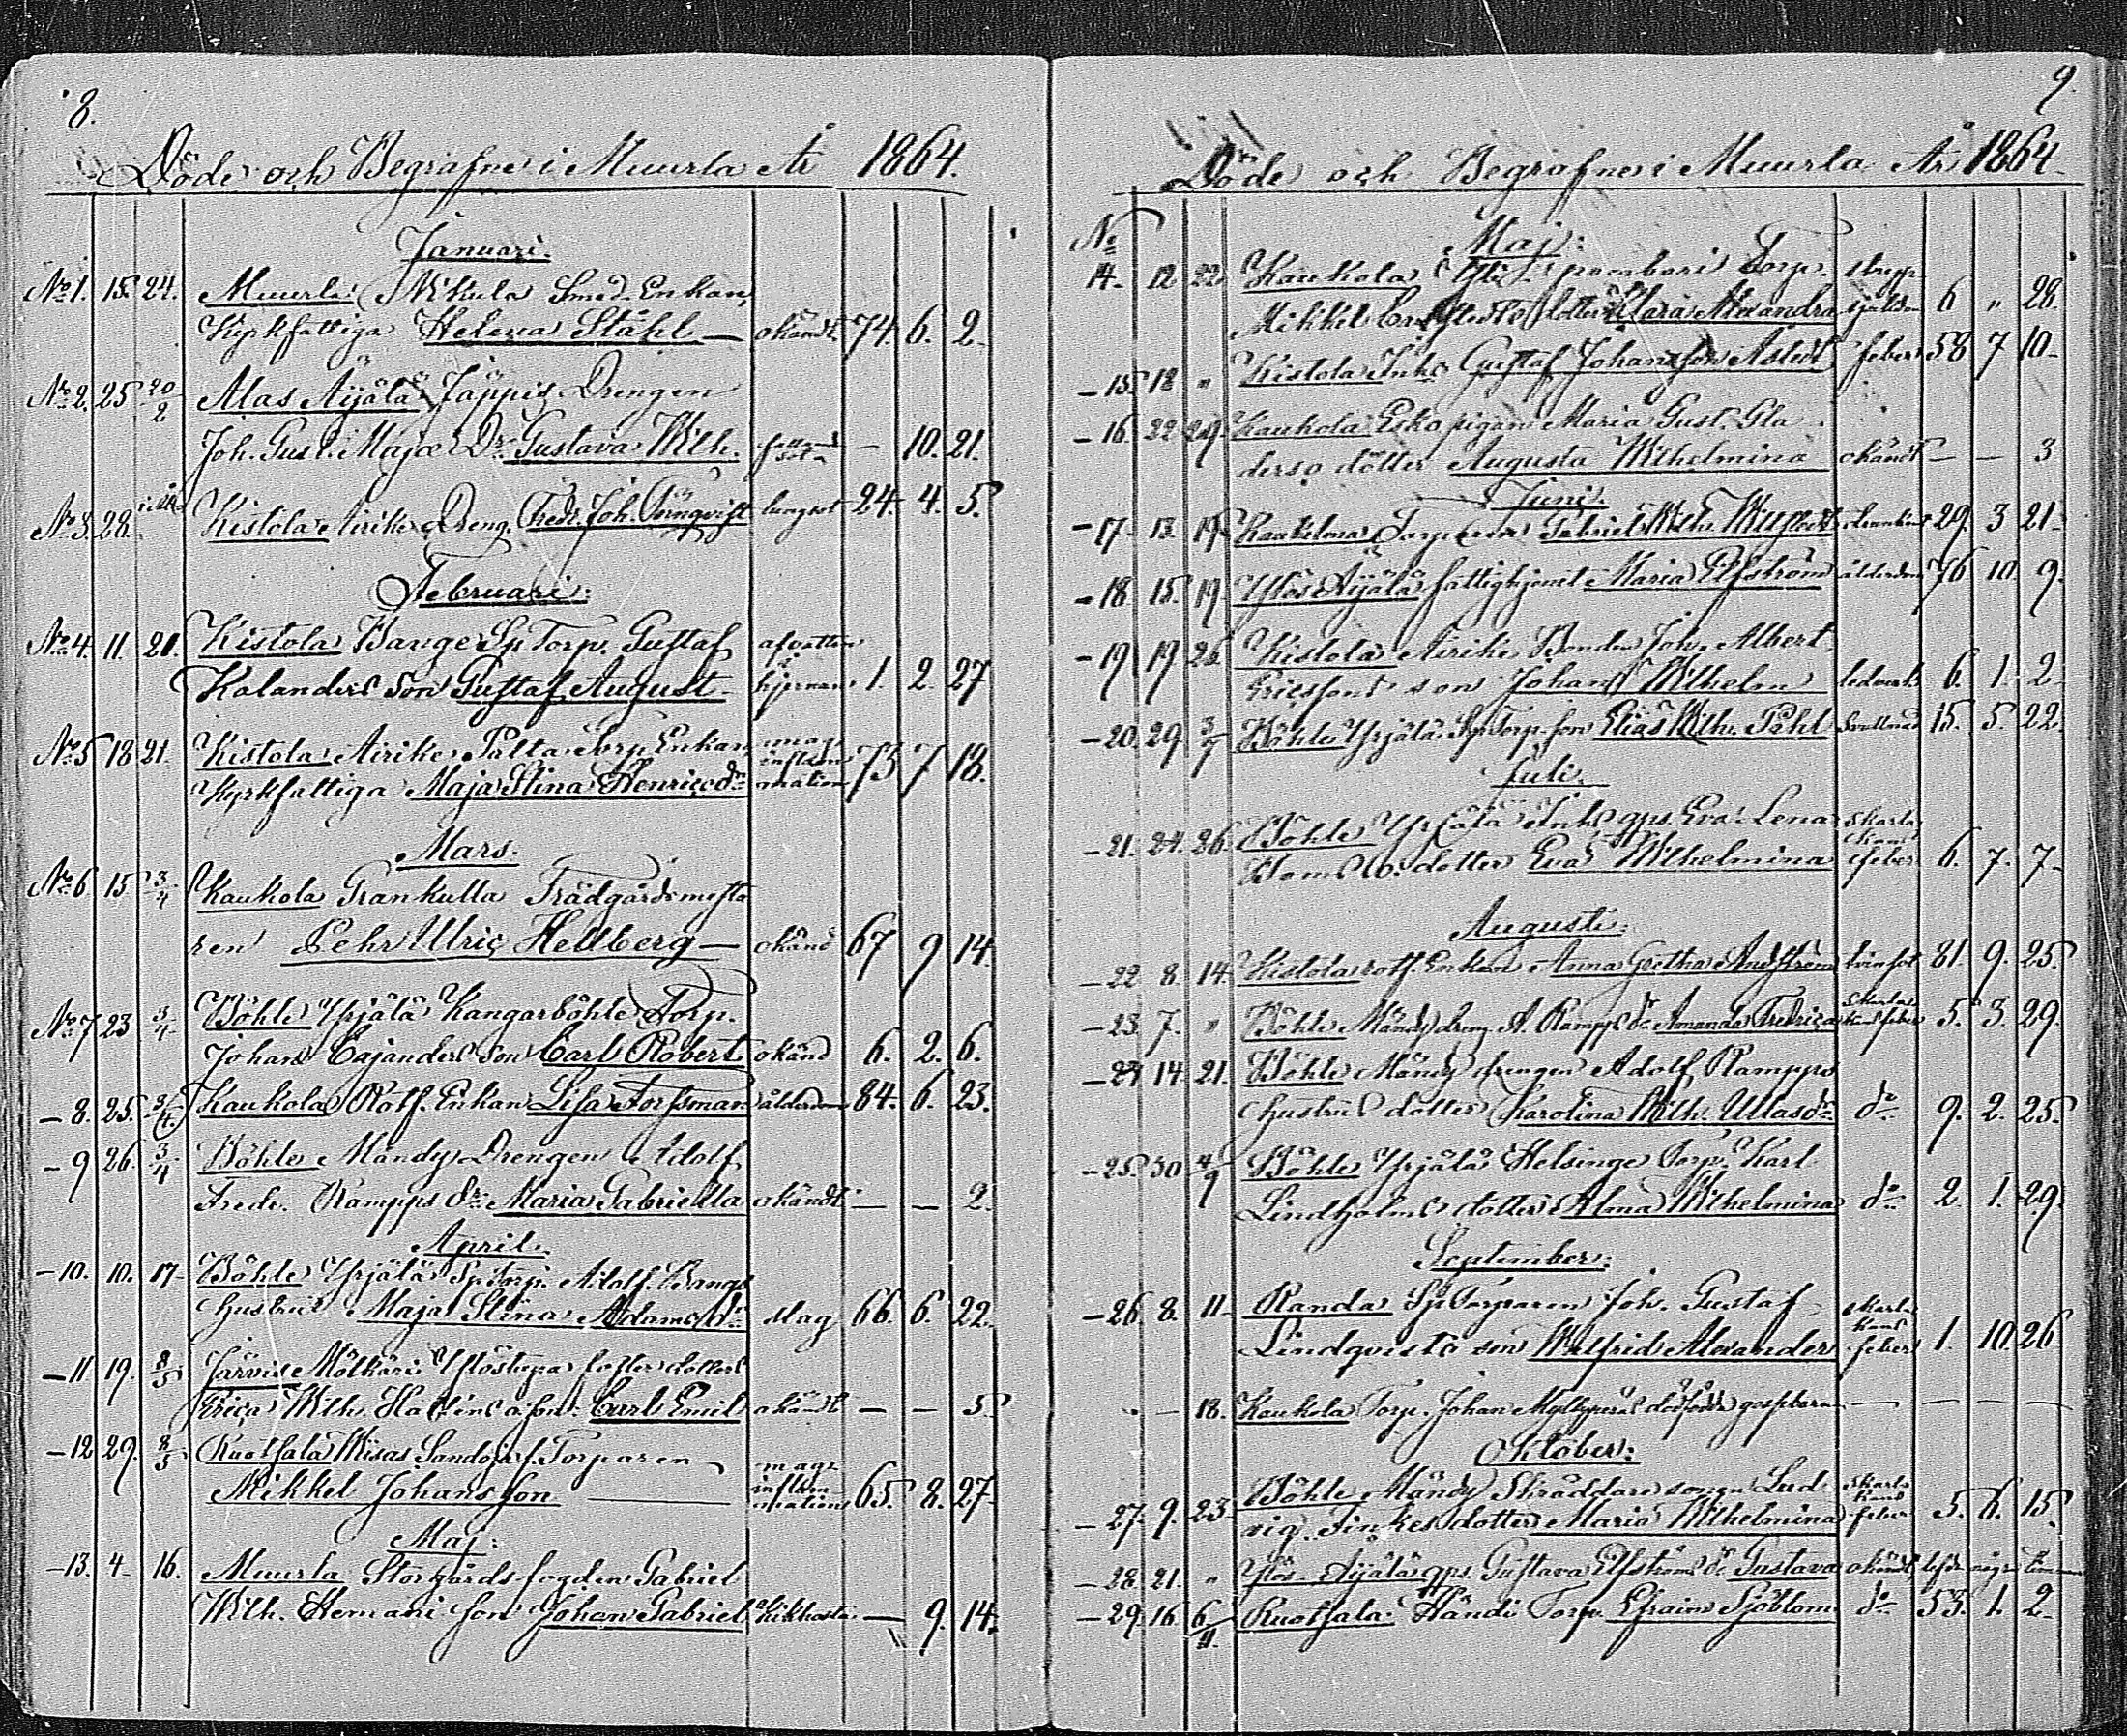 8.
Döde och Begrafne i Muurla År 1864.
Januari.
No 1. 15. 24. Muurla Nikula Smed Enkan
Kyrkfattiga Helena Ståhl — okändt 74. 6. 2.
No 2. 25 20/2 Alas Äijälä Jäppis Drengen
Joh. Gust. Maja Dr Gustava Wilh. — 10. 21.
No 3. 28. Kistola Airike Dreng. Fredr. Joh. Törnqvist lungsot 24. 4. 5.
Februari:
No 4. 11. 21. Kistola Bange Sp Torp. Gustaf
Kalanders son Gustaf August hjernan 1. 2. 27
No 5 18 21. Kistola Airike Palta Torp Enkan mag inflam
Kyrkfattiga Maja Stina Henricsdr mation 73 7 18.
Mars.
No 6 15 3/4 Kaukola Grankulla Trädgårdsmästa
ren Pehr Ulric Hellberg — okänd 67 9 14.
No 7 23 3/4 Böhle Yrjälä Kangarböhle Torp.
Johan Cajanders son Carl Robert okänd 6. 2. 6.
— 8. 25. 3/4 Kaukola Rotf. Enkan Lisa Forssman ålderdom 84. 6. 23.
— 9 26. 3/4 Böhle Mändy Drengen Adolf
Fredr. Kampps dr Maria Gabriella okändt — — 2.
April.
— 10. 10. 17 Böhle Yrjälä Sp Torp. Adolf Bangs
hustru Maja Stina Adamsdr slag 66. 6. 22.
— 11 19. 8/5 Järvis Mölkäri Ylöstupa dotters
Erica Wilh. son: Carl Emil okändt — — 5.
— 12 29. 8/5 Ruotsala Wisas Torparen
Mikkel Johansson — mag inflam mation 65. 8. 27
Maj:
— 13. 4 16. Muurla Storgårds fogden Gabriel
Wilh. Hemani son Johan Gabriel kikhosta — 9. 14.
9.
Döde och Begrafne i Muurla År 1864.
No
Maj:
14. 12 22 Kaukola Torp. stryp
Mikkel dotter Clara Alexandra 6 " 28.
— 15. 18 " Kistola Inhs Gustaf Johansson Asledt feber 58 7 10
— 16. 22 29. Kaukola Esko pigan Maria Gust. Gla
ders o dotter Augusta Wilhelmina okändt — — 3
Juni.
— 17. 13. 19. Torparen Gabriel Wilh. 29. 3 21
— 18 15. 19. Ylös Äijälä fattighjonet Maria Elfström ålderdom 76 10. 9.
— 19 19 26 Kistola Airike Bonden Joh. Albert
Ericssons son Johan Wilhelm ledverk 6. 1. 2
— 20. 29 3/7 Böhle Yrjälä Sp Torp. son Elias Wilh. Påhl 15. 5. 22.
Juli.
— 21. 24. 26. Böhle Yrjälä Inhs gps. Eva Lena skarla
dotter Eva Wilhelmina feber 6. 7. 7
Augusti.
— 22 8. 14. Kistola rotf. Enkan Anna Gretha 81. 9. 25.
— 23. 7. " Böhle Mändy dreng A. Kampps dr Amanda Fredrica skarlakansfeber 5. 3. 29.
— 24 14. 21. Böhle Mändy drengen Adolf Kampps
hustrus dotter Karolina Wilh. Ullasdr do 9. 2. 25.
— 25. 30 4/9 Böhle Yrjälä Helsinge Torp. Karl
Lindholms dotter Alma Wilhelmina do 2. 1. 29.
September:
— 26 8. 11 Randa Sp Torparen Joh. Gustaf skarla
Lindqvists son Wilfrid Alexander kans feber 1. 10. 26
— 18. Kaukola Torp. Johan dödfödda gossbarn — — — —
Oktober:
— 27. 9. 23 Böhle Mändy Skräddare sonen Lud skarla kans
vig dotter Maria Wilhelmina feber 5. 6. 15.
— 28. 21. " Ylös Äijälä gps. Gustava Elfströms dr Gustava okändt
— 29. 16 6/11. Ruotsala Händi Torp. Efraim Sjöblom do 53. 1. 2